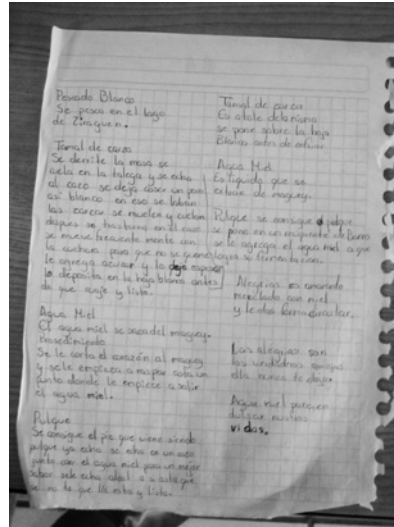 Pescado Blanco
Se pesca en el lago
de Ziraguen.
Tamal de zarza
Se derrite la masa se
cuela en la talega y se echa
al cazo se deja coser un poco
así blanco en eso se laban
las zarzas se muelen y cuelan
después se trastorna en el cazo
se mueve frecuentemente con
la cuchara para que no se queme
le agrega azucar y lo deja espesar
lo deposita en la hoja blanca antes
de que cuaje y listo.
Agua Miel
El agua miel se saca del maguey.
Procedimiento
Se le corta el corazón al maguey
y se le empieza a raspar hasta un
punto donde le empiece a salir
el agua miel.
Pulque
Se consigue el pie que viene siendo
pulque ya echo se echa en un
junto con el agua miel para un mejor
sabor se le echa
se no te que y listo.
Tamal de zarza
Es atole de la misma
se pone sobre la hoja
Blanca antes de enfriar
Agua Miel
Es liquido que se
extrae de maguey.
Pulque se consigue el pulque
se pone en un recipiente de Barro
se le agrega el agua miel a que
logre su fermentacion.
Alegrias es amaranto
mezclado con miel
y le das forma circular.
Las alegrias son
las
ella nunca te deja.
Agua miel para en
dulzar nuestras
vidas.